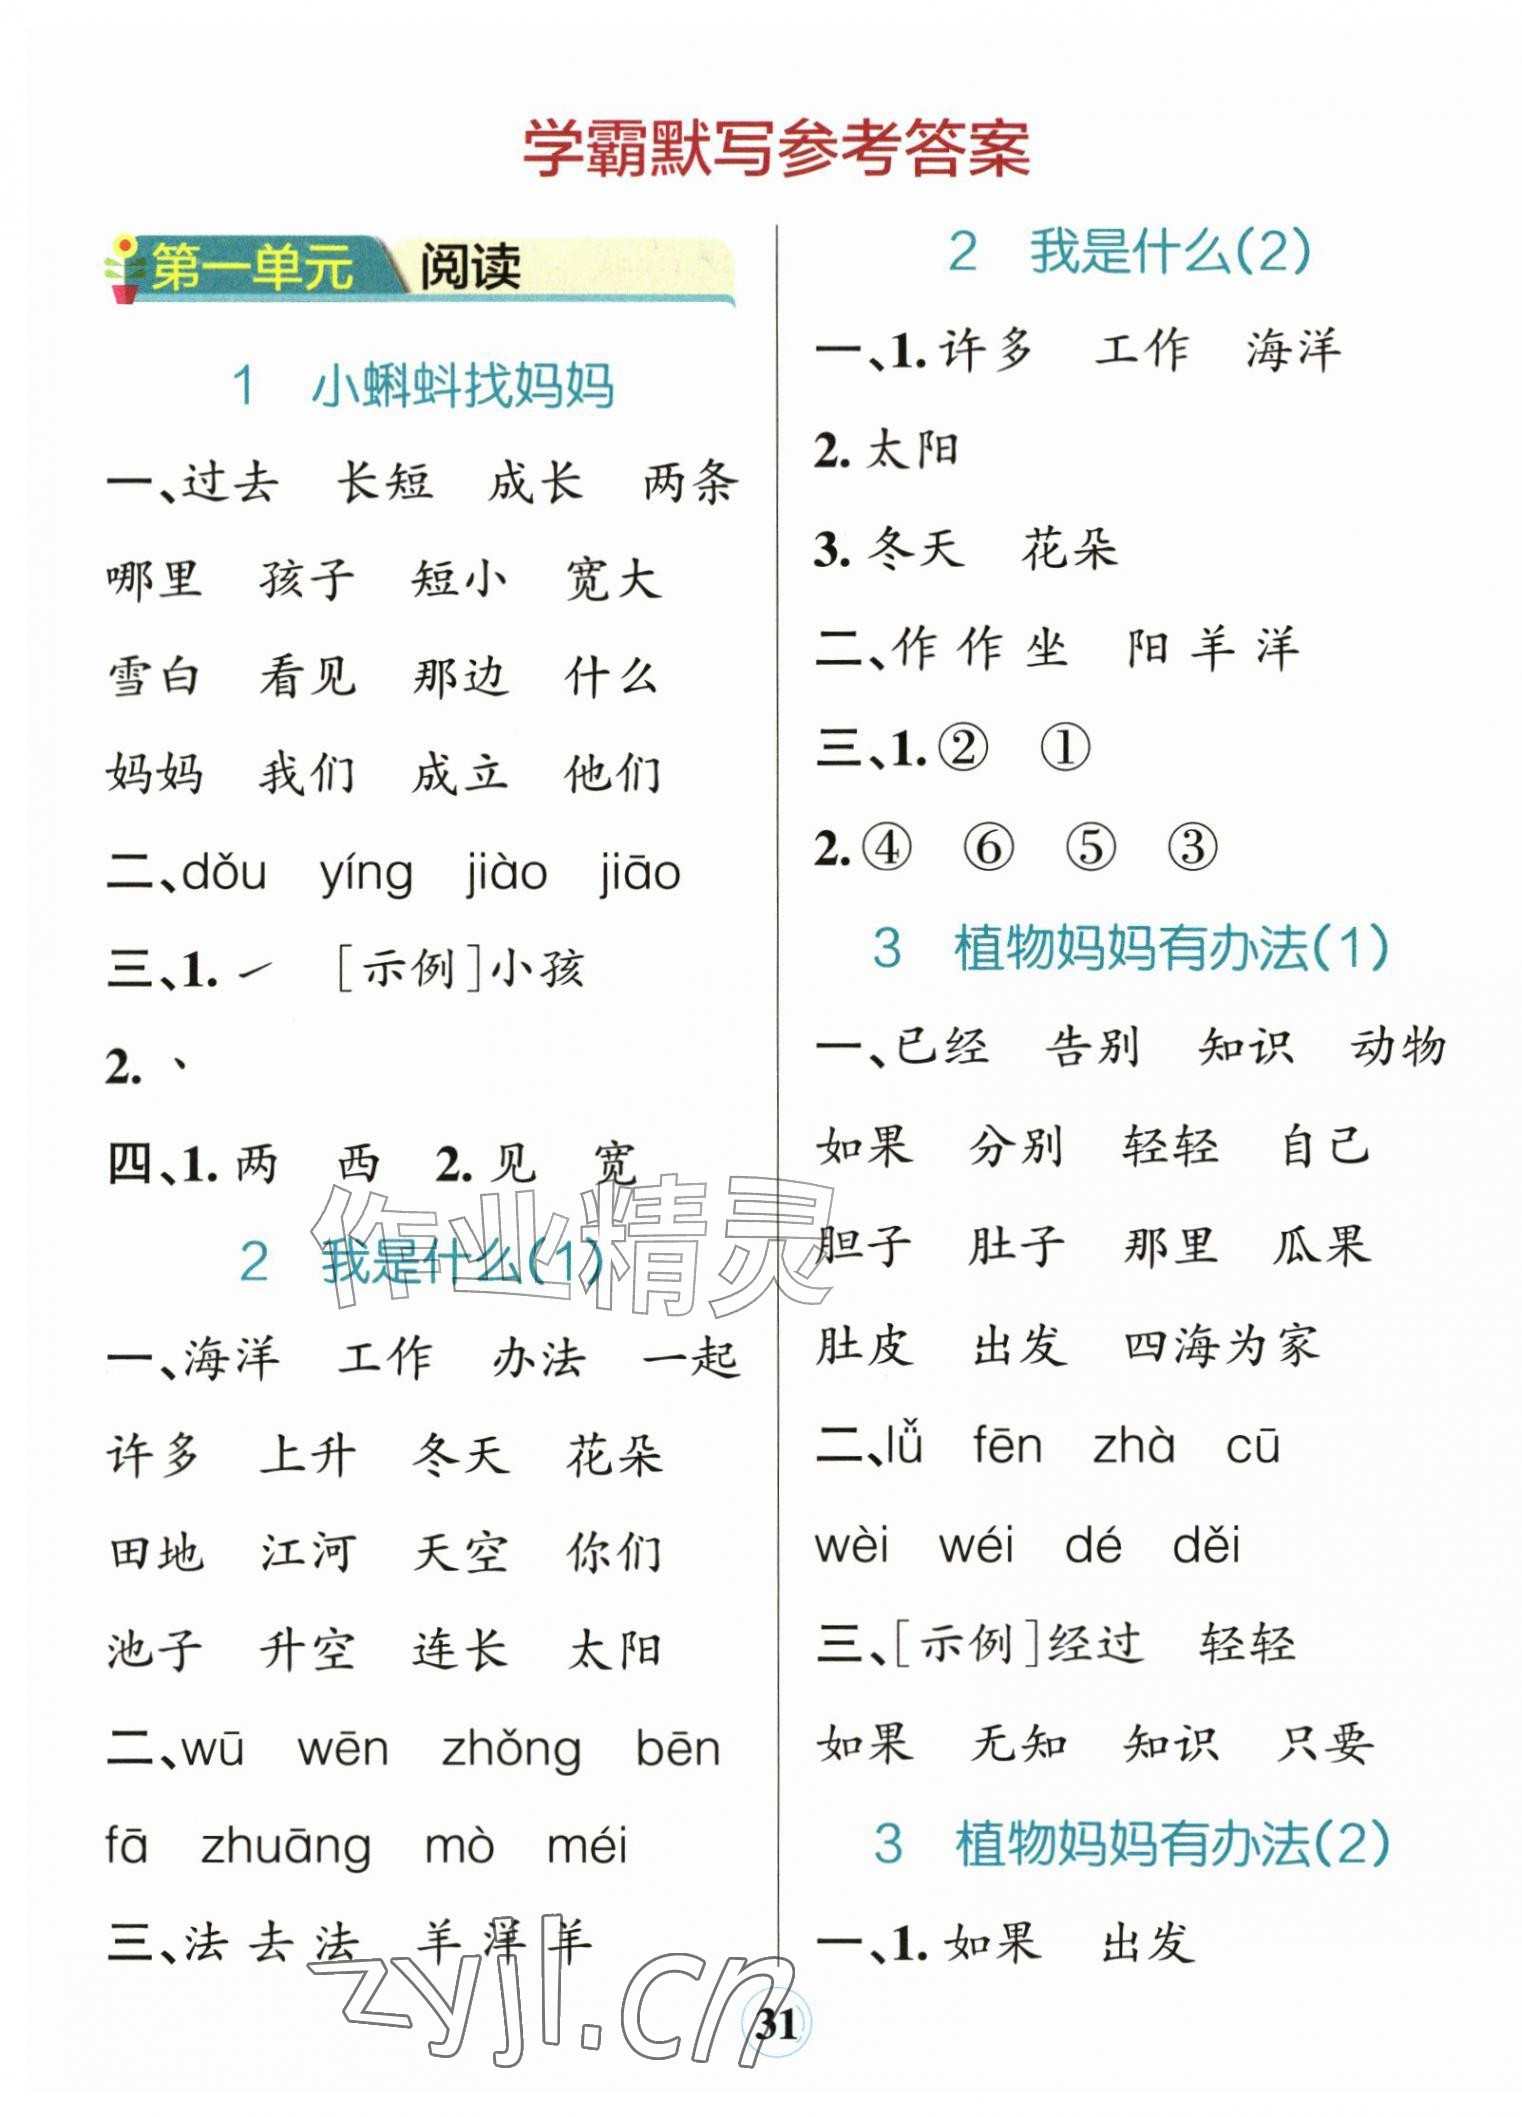 学霸默写参考答案
第一单元 阅读
1 小蝌蚪找妈妈
一、过去 长短 成长 两条
哪里 孩子 短小 宽大
雪白 看见 那边 什么
妈妈 我们 成立 他们
二、dǒu yíng jiào jiāo
三、1.㇀ [示例]小孩
2.丶
四、1.两 西 2.见 宽
2 我是什么(1)
一、海洋 工作 办法 一起
许多 上升 冬天 花朵
田地 江河 天空 你们
池子 升空 连长 太阳
二、wū wēn zhǒng bēn
fā zhuāng mò méi
三、法 去 法 羊 洋 羊
2 我是什么(2)
一、1.许多 工作 海洋
2.太阳
3.冬天 花朵
二、作 作 坐 阳 羊 洋
三、1.② ①
2.④ ⑥ ⑤ ③
3 植物妈妈有办法(1)
一、已经 告别 知识 动物
如果 分别 轻轻 自己
胆子 肚子 那里 瓜果
肚皮 出发 四海为家
二、lǚ fēn zhà cū
wèi wéi dé děi
三、[示例]经过 轻轻
如果 无知 知识 只要
3 植物妈妈有办法(2)
一、1.如果 出发
31
作业精灵
zyjl.cn